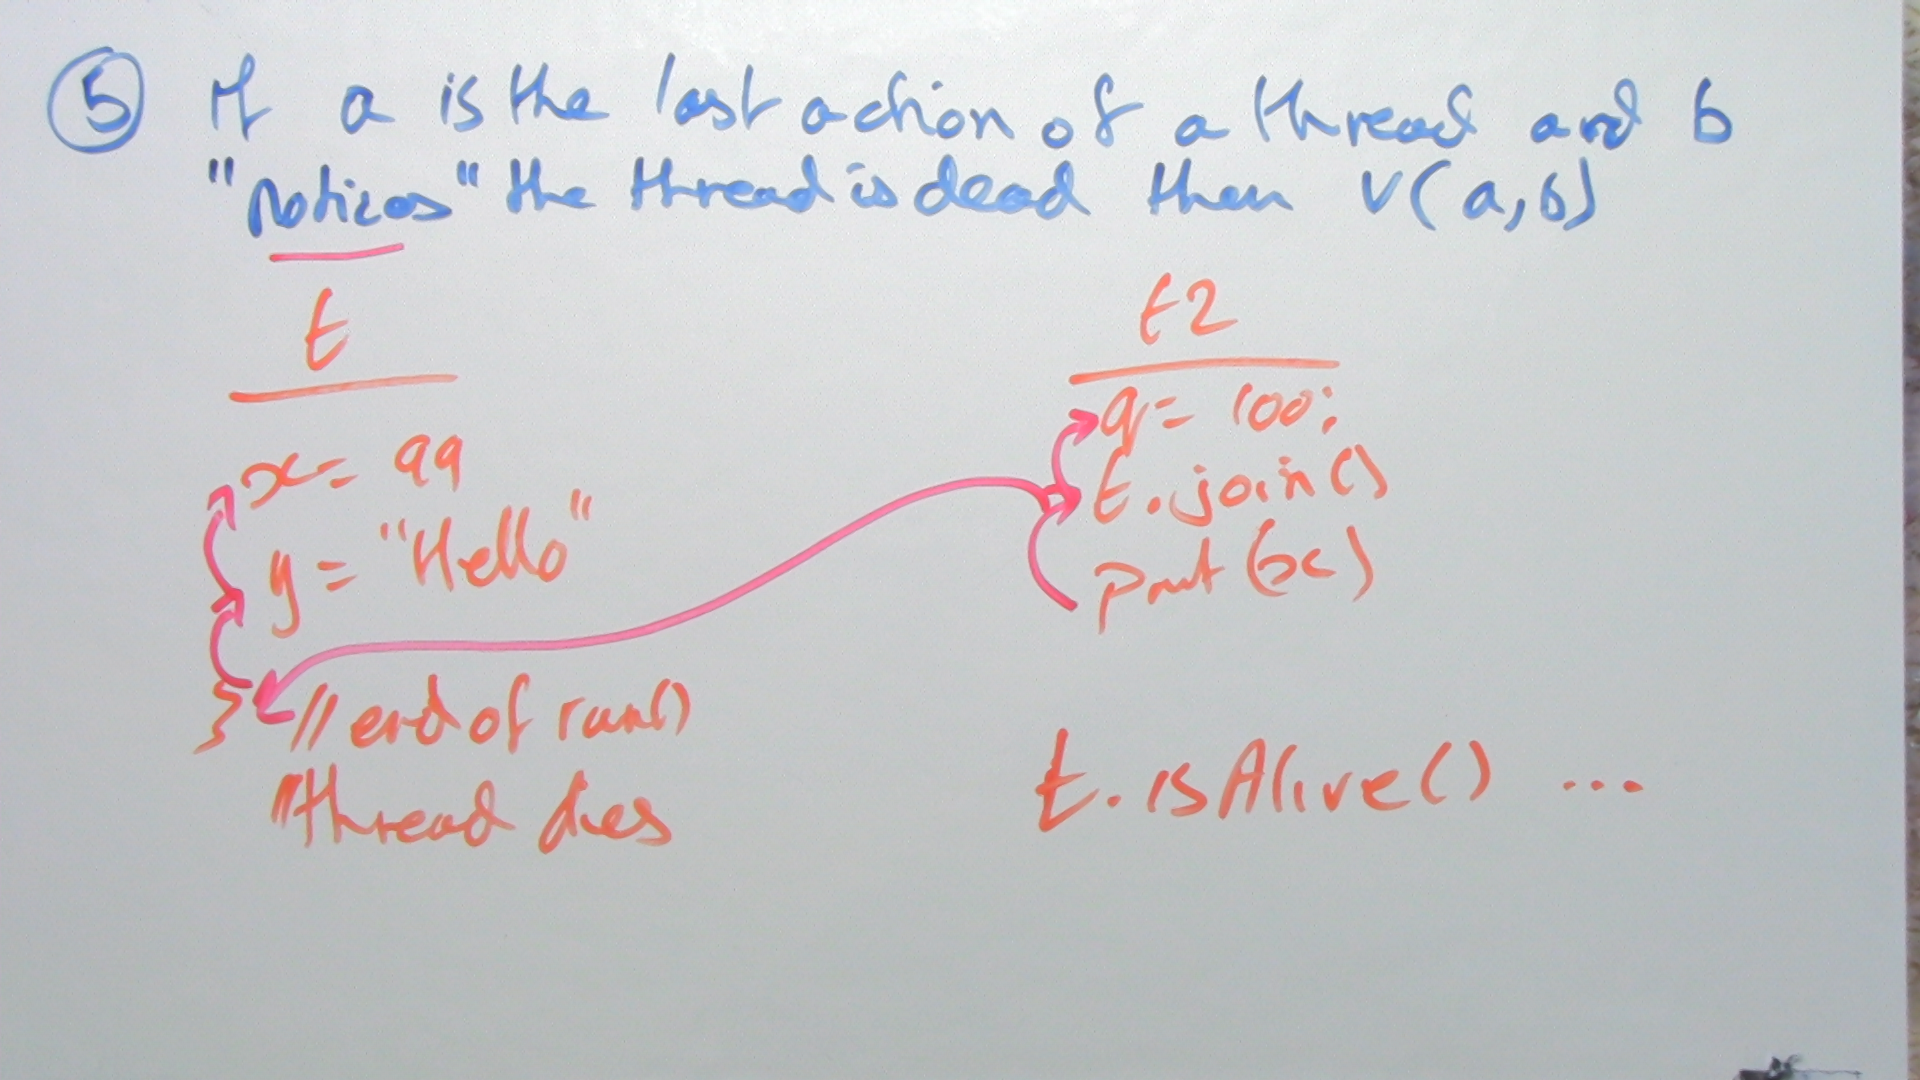 5 If a is the last action of a thread and b
"notices" the thread is dead then v(a,b)
t
x = 99
y = "Hello"
} // end of run()
"thread dies
t2
q = 100;
t.join()
print(x)
t.isAlive() ...